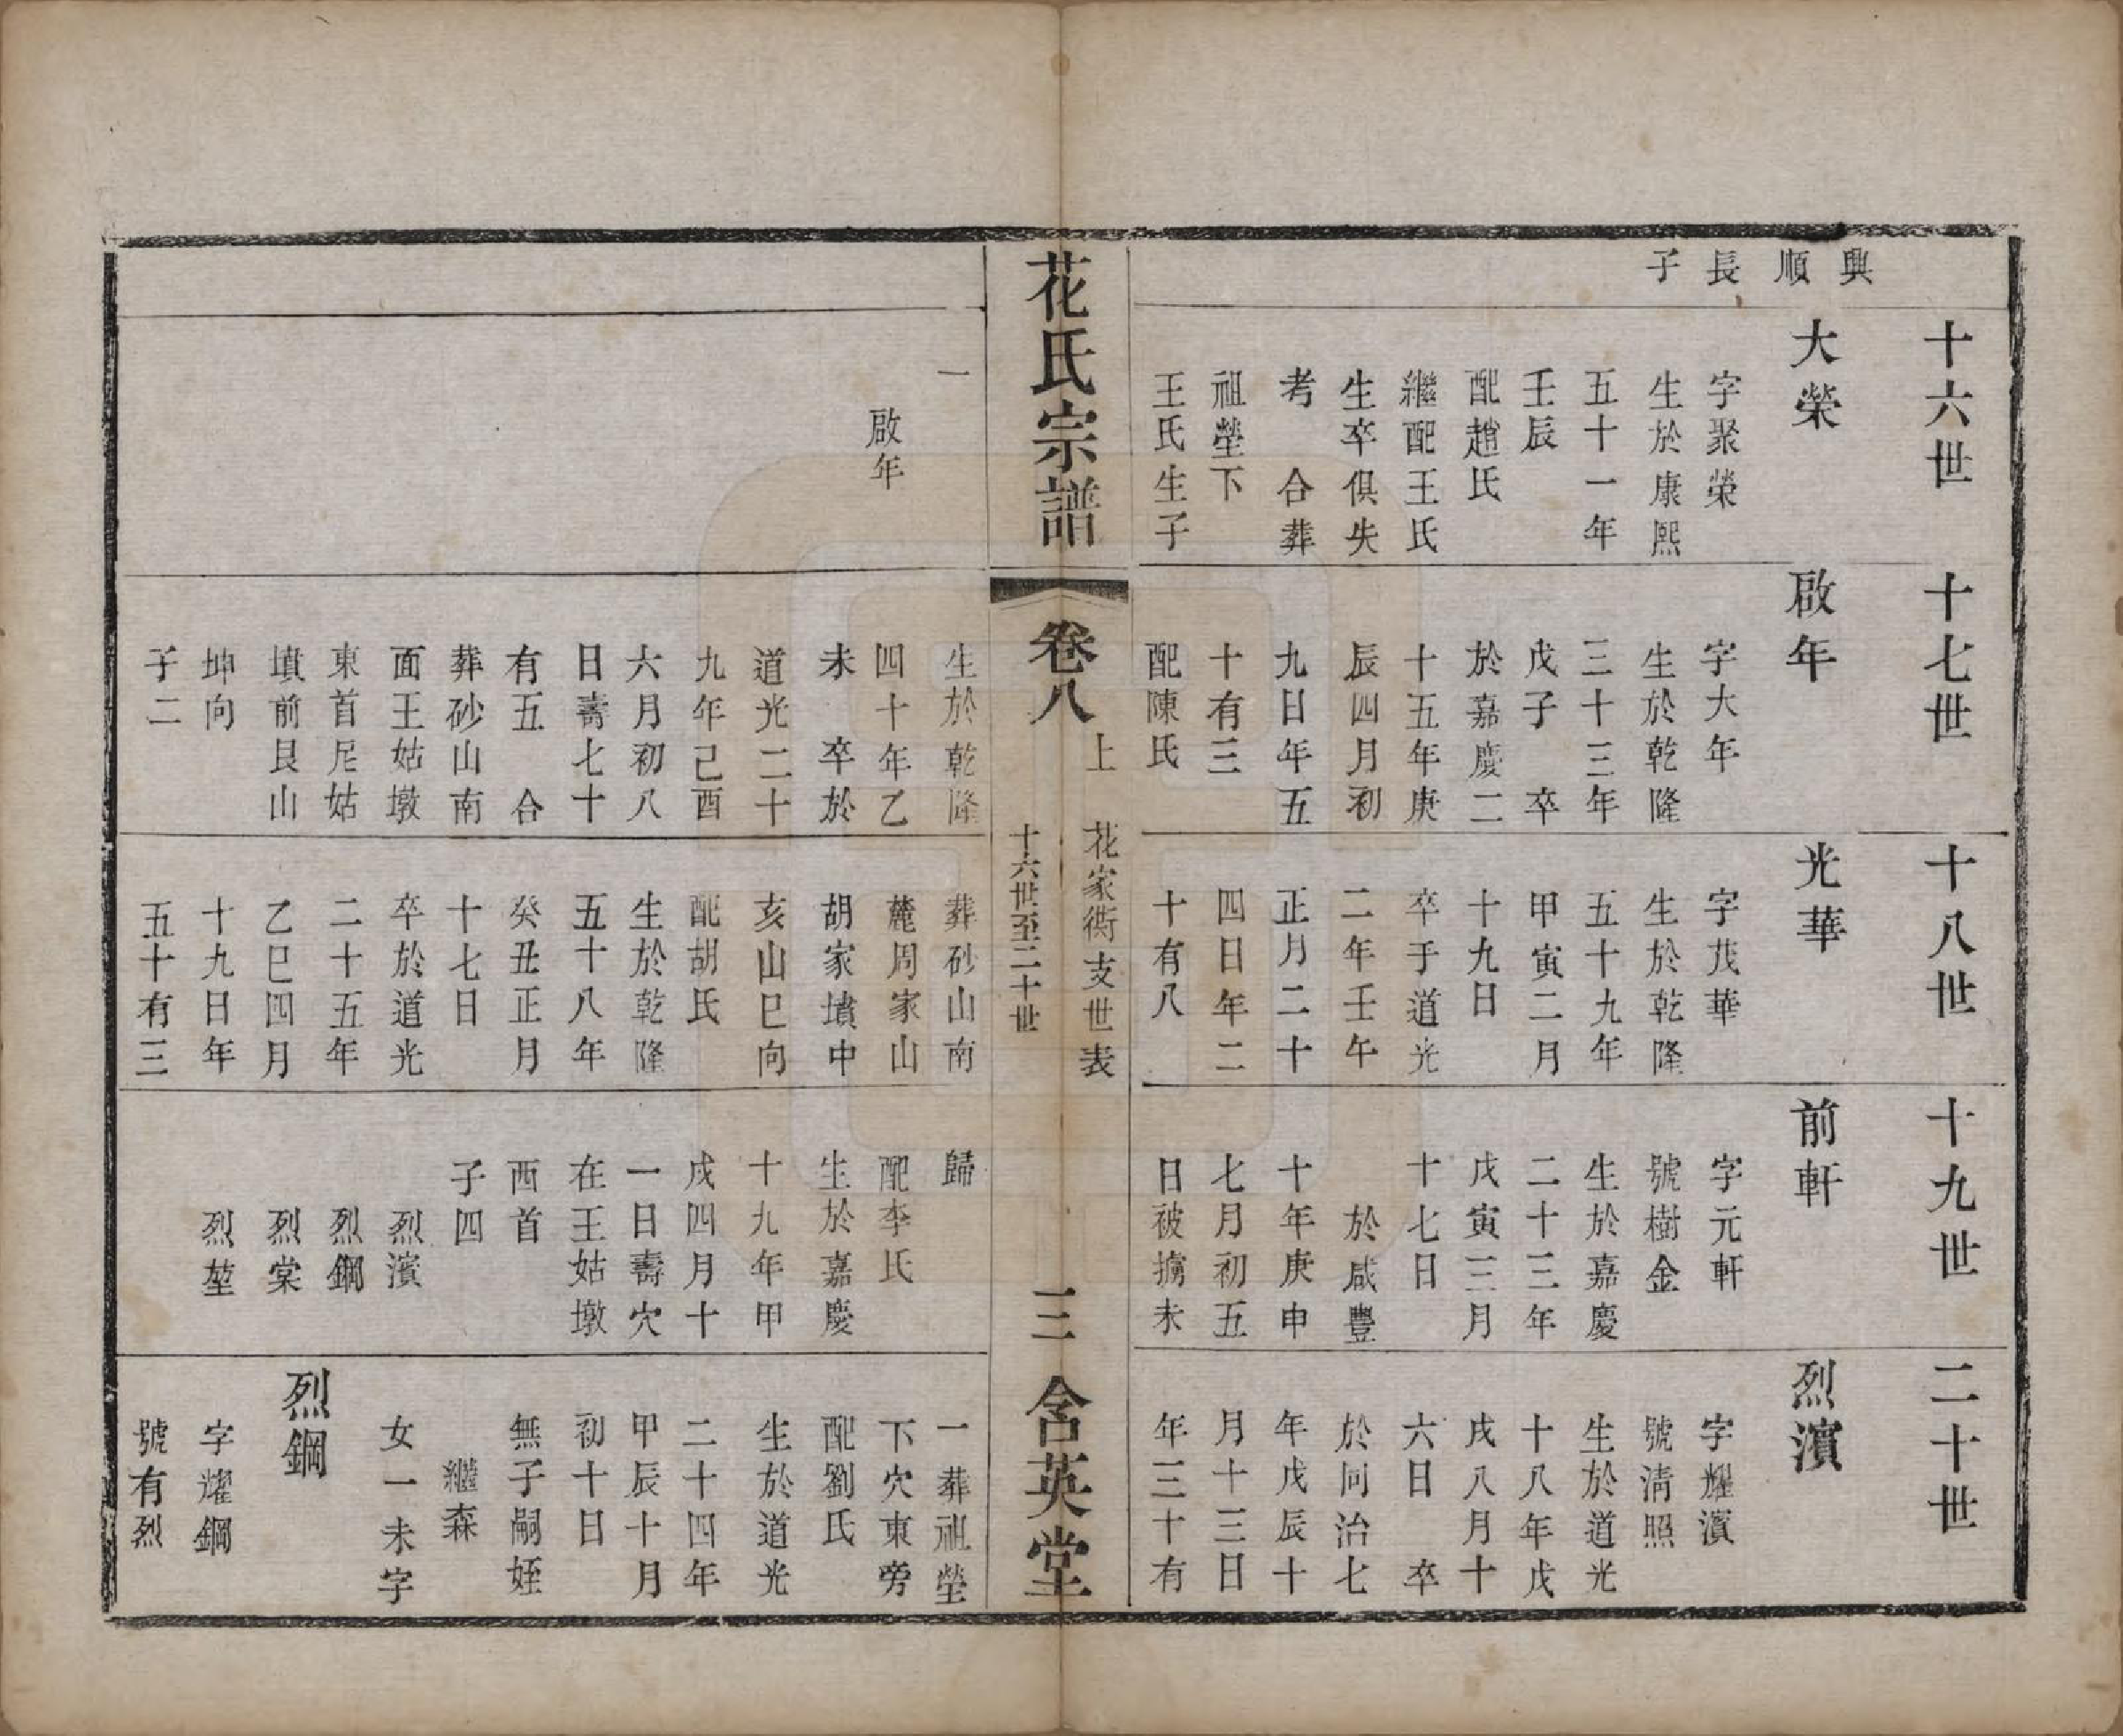 興
順
長
子
十六世
大榮
字聚榮
生於康熙
五十一年
壬辰
配趙氏
繼配王氏
生卒俱失
考　合葬
祖塋下
王氏生子
一
啟年
十七世
啟年
字大年
生於乾隆
三十三年
戊子　卒
於嘉慶二
十五年庚
辰四月初
九日年五
十有三
配陳氏
生於乾隆
四十年乙
未　卒於
道光二十
九年己酉
六月初八
日壽七十
有五　合
葬砂山南
面王姑墩
東首尼姑
墳前艮山
坤向
子二
十八世
光華
字茂華
生於乾隆
五十九年
甲寅二月
十九日
卒于道光
二年壬午
正月二十
四日年二
十有八
葬砂山南
麓周家山
胡家墳中
亥山巳向
配胡氏
生於乾隆
五十八年
癸丑正月
十七日
卒於道光
二十五年
乙巳四月
十九日年
五十有三
十九世
前軒
字元軒
號樹金
生於嘉慶
二十三年
戊寅三月
十七日
於咸豐
十年庚申
七月初五
日被擄未
歸
配李氏
生於嘉慶
十九年甲
戌四月十
一日壽穴
在王姑墩
西首
子四
烈濱
烈鋼
烈棠
烈堃
二十世
烈濱
字耀濱
號清照
生於道光
十八年戊
戌八月十
六日　卒
於同治七
年戊辰十
月十三日
年三十有
一葬祖塋
下穴東旁
配劉氏
生於道光
二十四年
甲辰十月
初十日
無子嗣姪
繼森
女一未字
烈鋼
字耀鋼
號有烈
花氏宗譜
卷八
上
花家衖支世表
十六世至二十世
三
含英堂